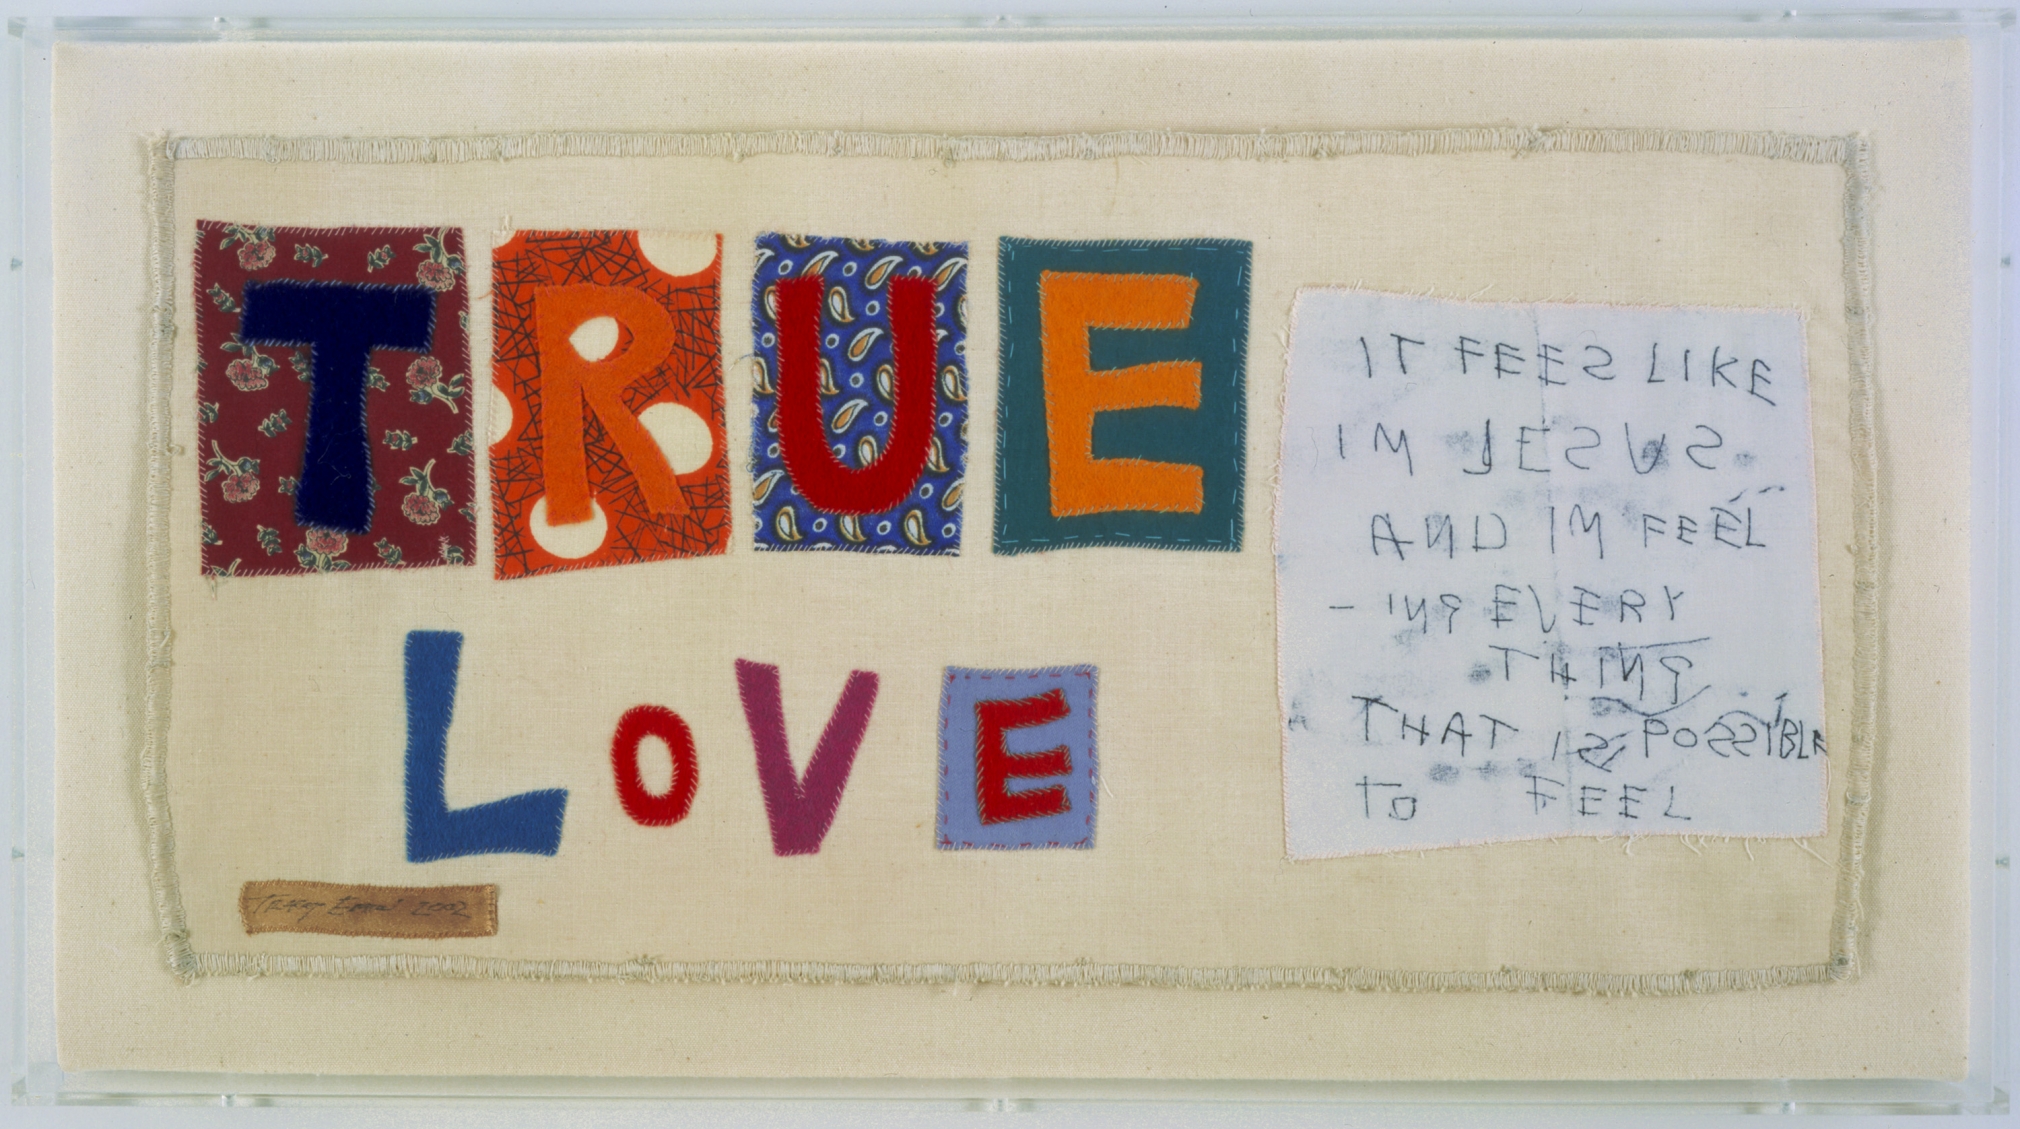 TRUE
LOVE
IT FEES LIKE
IM JESUS
AND IM FEEL
- ING EVERY
THING
THAT IS POSSIBLE
TO FEEL
Tracey Emin 2002